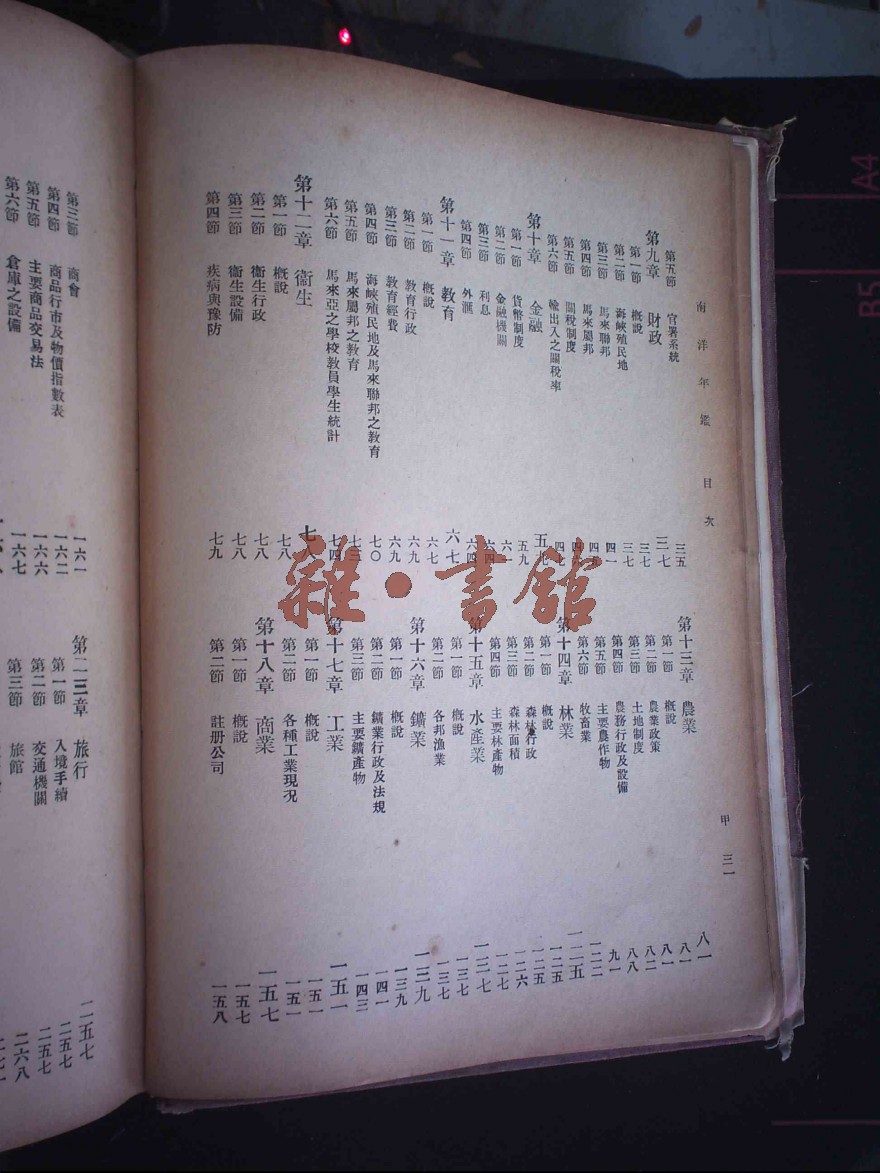 南洋年鑑 目次 甲 三一
第五節 官署系統 三五
第九章 財政 三七
第一節 概說 三七
第二節 海峽殖民地 三七
第三節 馬來聯邦 四一
第四節 馬來屬邦
第五節 關稅制度
第六節 輸出入之關稅率
第十章 金融
第一節 貨幣制度 五九
第二節 金融機關
第三節 利息
第四節 外滙
第十一章 教育 六七
第一節 概說 六七
第二節 教育行政 六九
第三節 教育經費 六九
第四節 海峽殖民地及馬來聯邦之教育 七〇
第五節 馬來屬邦之教育 七三
第六節 馬來亞之學校教員學生統計 七四
第十二章 衞生 七八
第一節 概說 七八
第二節 衞生行政 七八
第三節 衞生設備 七八
第四節 疾病與豫防 七九
第十三章 農業 八一
第一節 概說 八一
第二節 農業政策 八一
第三節 土地制度 八二
第四節 農務行政及設備 八八
第五節 主要農作物 九一
第六節 牧畜業 一二二
第十四章 林業 一二五
第一節 概說 一二五
第二節 森林行政 一二五
第三節 森林面積 一二六
第四節 主要林產物 一二七
第十五章 水產業 一三七
第一節 概說 一三七
第二節 各邦漁業 一三七
第十六章 鑛業 一三九
第一節 概說 一三九
第二節 鑛業行政及法規 一四一
第三節 主要鑛產物 一四三
第十七章 工業 一五一
第一節 概說 一五一
第二節 各種工業現況 一五一
第十八章 商業 一五七
第一節 概說 一五七
第二節 註册公司 一五八
第三節 商會 一六一
第四節 商品行市及物價指數表 一六二
第五節 主要商品交易法 一六六
第六節 倉庫之設備 一六七
第二三章 旅行 二五七
第一節 入境手續 二五七
第二節 交通機關 二五七
第三節 旅館 二六八
雜·書館
A4
B5